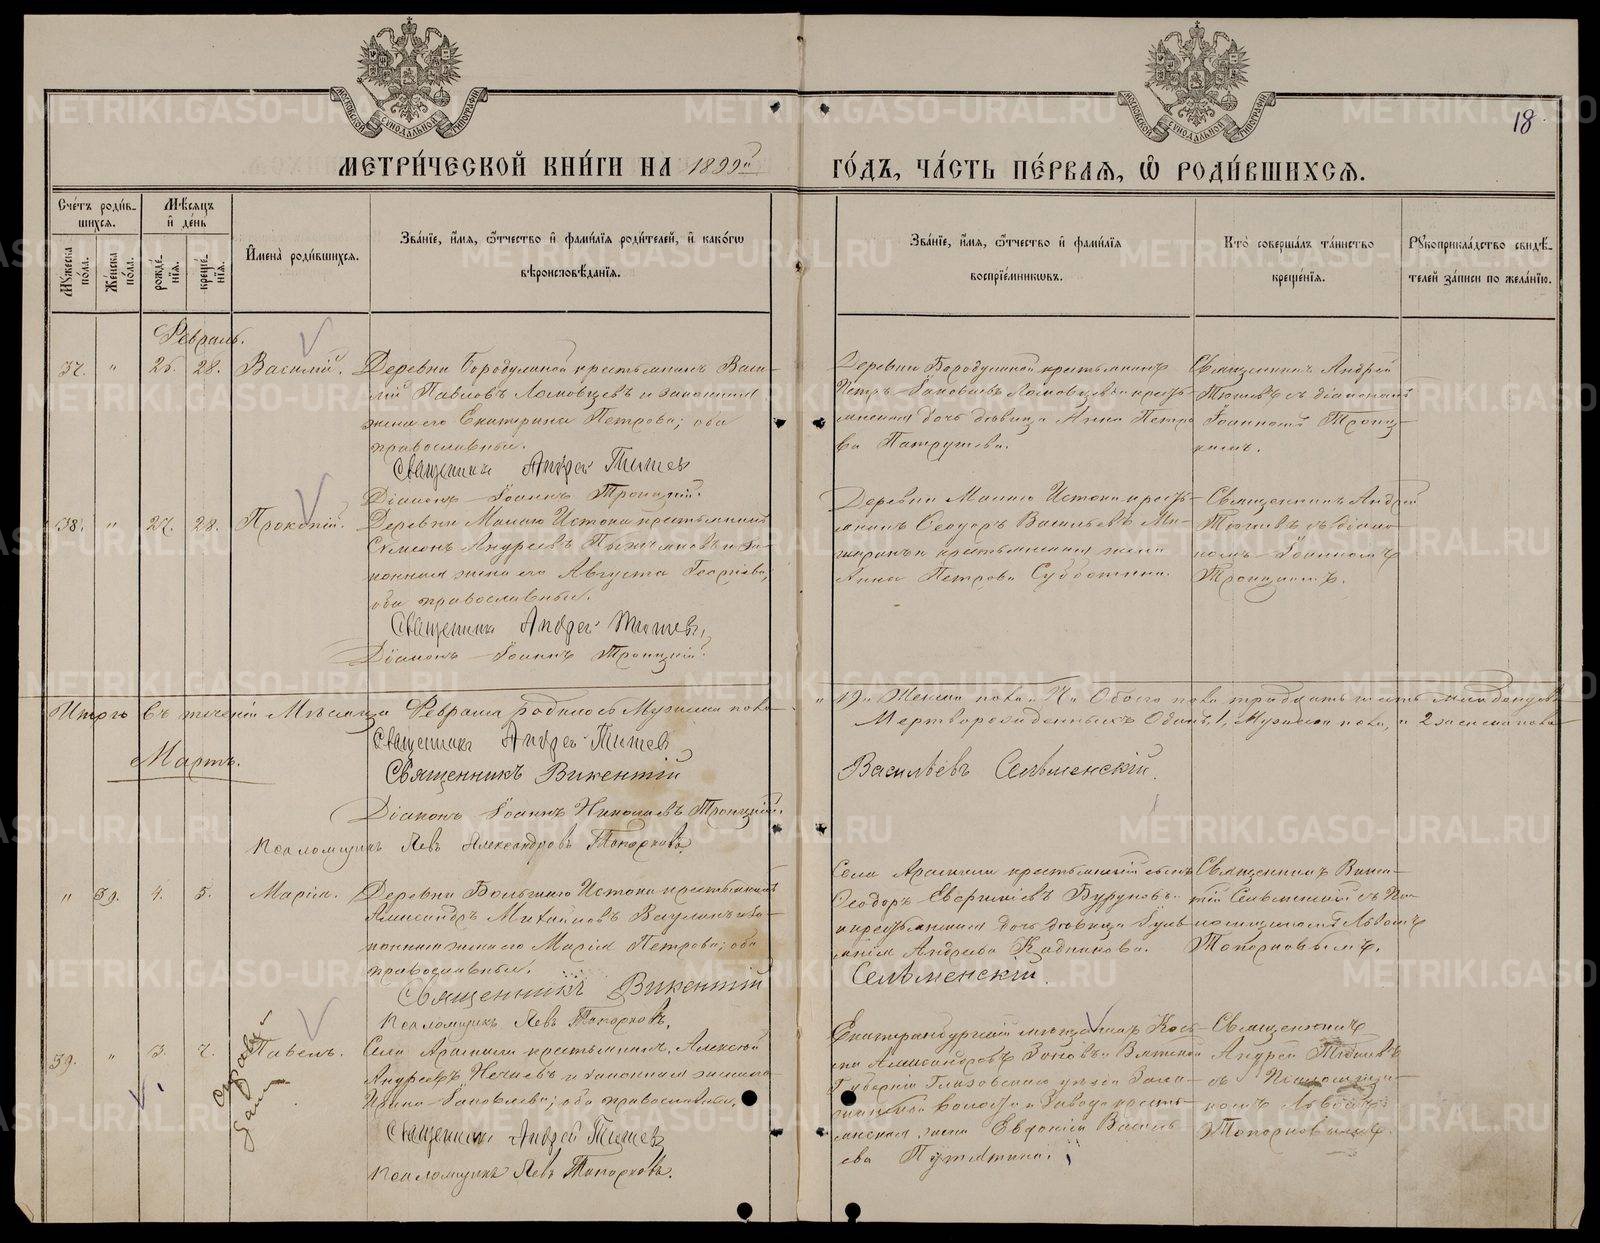 МОСКОВСКОЙ СѴНОДАЛЬНОЙ ТИПОГРАФІИ
МОСКОВСКОЙ СѴНОДАЛЬНОЙ ТИПОГРАФІИ
18
МЕТРИ́ЧЕСКОЙ КНИ́ГИ НА 1899й ГО́ДЪ, ЧА́СТЬ ПЕ́РВАѦ, Ѡ҆ РОДИ́ВШИХСѦ.
Сче́тъ роди́в-
шихся.
Мѣ́сяцъ
и҆ де́нь
Му́жеска
по́ла.
Же́нска
по́ла.
рожде́-
нїя.
креще́-
нїя.
И҆мена̀ роди́вшихся.
Зва́нїе, и҆́мя, ѻ҆́тчество и҆ фами́лїя роди́телей, и҆ како́гѡ
вѣроисповѣ́данїя.
Зва́нїе, и҆́мя, ѻ҆́тчество и҆ фами́лїя
воспрїе́мникѡвъ.
Кто̀ соверша́лъ та́инство
креще́нїя.
Рꙋкоприкла́дство свидѣ́-
телей за́писи по жела́нїю.
Февраль.
37. " 25. 28. Василій.
Деревни Бородулиной крестьянинъ Васи-
лій Павловъ Ломовцевъ и законная
жена его Екатерина Петрова; оба
православные.
Священникъ Андрей Титовъ
Діаконъ Іоаннъ Троицкій.
Деревни Бородулиной крестьянинъ
Петръ Іаковлевъ Ломовцевъ и кресть-
янская дочь дѣвица Анна Петро
ва Патрушева.
Священникъ Андрей
съ діакономъ
Іоанномъ Троиц-
кимъ.
38. " 27. 28. Прокопій.
Деревни Малаго Истока крестьянинъ
Симеонъ Андреевъ и за-
конная жена его Августа Георгіева,
оба православные.
Священникъ Андрей
Діаконъ Іоаннъ Троицкій.
Деревни Малаго Истока кресть-
янинъ Ѳеодоръ Васильевъ
и крестьянская жена
Анна Петрова Субботина.
Священникъ Андрей
съ діако-
номъ Іоанномъ
Троицкимъ.
Итого въ теченіи Мѣсяца Февраля родилось Мужеска пола
" 19, Женска пола 17. Обоего пола тридцать шесть младенцевъ
Мертворожденныхъ Одинъ 1, Мужеска пола, и 2 женска пола
Священникъ Андрей
Мартъ.
Священникъ Викентій Васильевъ Сельменскій.
Діаконъ Іоаннъ Николаевъ Троицкій.
Псаломщикъ Левъ Александровъ Топорковъ.
" 39. 4. 5. Марія.
Деревни Большаго Истока крестьянинъ
Александръ Михаиловъ Ваулинъ и за-
конная жена его Марія Петрова; оба
православные.
Священникъ Викентій Сельменскій.
Псаломщикъ Левъ Топорковъ.
Села Арамили крестьянскій сынъ
Ѳеодоръ Евгеніевъ Бурухинъ
и крестьянская дочь дѣвица
Андреева Кадникова.
Священникъ Викен-
тій Сельменскій съ Пса-
ломщикомъ Львомъ
Топорковымъ.
39. " 3. 7. Павелъ.
Справка
дана
Села Арамили крестьянинъ Алексѣй
Андреевъ Нечаевъ и законная жена его
Ирина Іаковлева; оба православные.
Священникъ Андрей
Псаломщикъ Левъ Топорковъ.
Екатеринбургскій мѣщанинъ Кось-
ма Александровъ Зоновъ и Вятской
Губерніи Глазовскаго уѣзда Зали-
волости и Завода кресть-
янская жена Евдокія Василь
ева
Священникъ
Андрей
съ Псаломщи-
комъ Львомъ
Топорковымъ.
METRIKI.GASO-URAL.RU